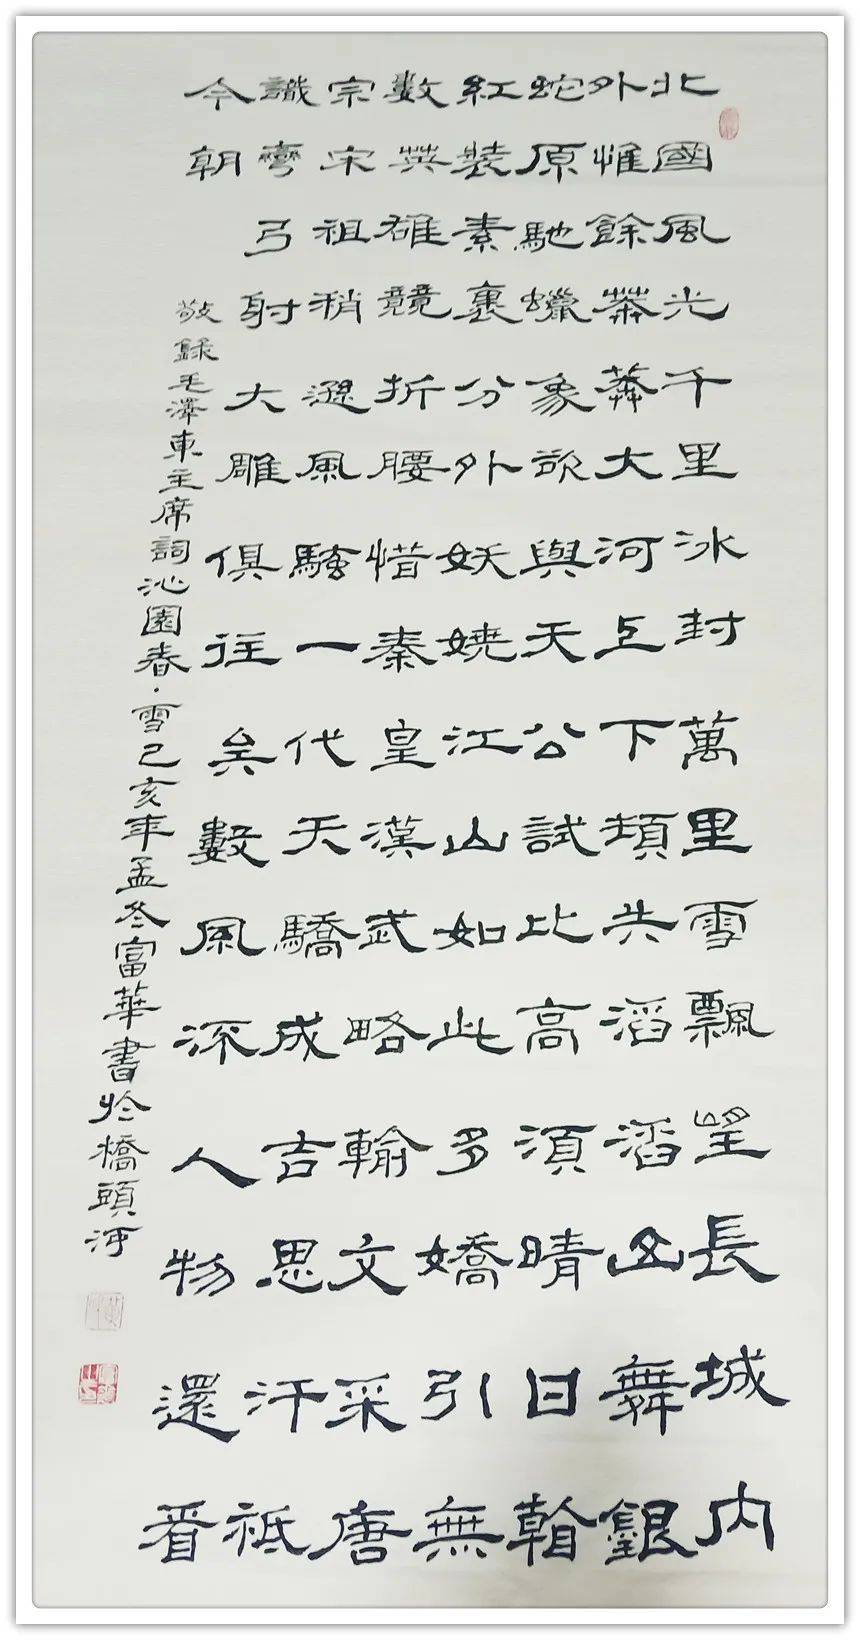 北國風光千里冰封萬里雪飄望長城內
外惟餘莽莽大河上下頓失滔滔山舞銀
蛇原馳蠟象欲與天公試比高須晴日看
紅裝素裹分外妖嬈江山如此多嬌引無
數英雄競折腰惜秦皇漢武略輸文采唐
宗宋祖稍遜風騷一代天驕成吉思汗祗
識彎弓射大雕俱往矣數風流人物還看
今朝
敬錄毛澤東主席詞沁園春·雪己亥年孟冬富華書於橋頭河